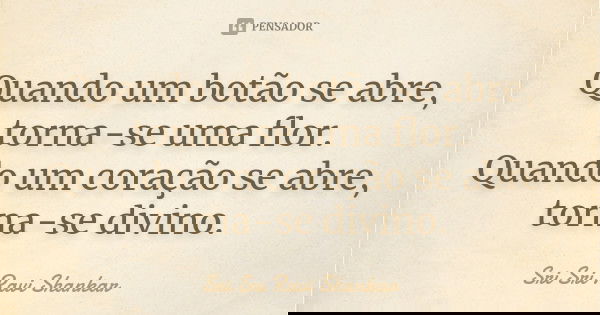 PENSADOR
Quando um botão se abre,
torna-se uma flor.
Quando um coração se abre,
torna-se divino.
Sri Sri
Ravi Shankar